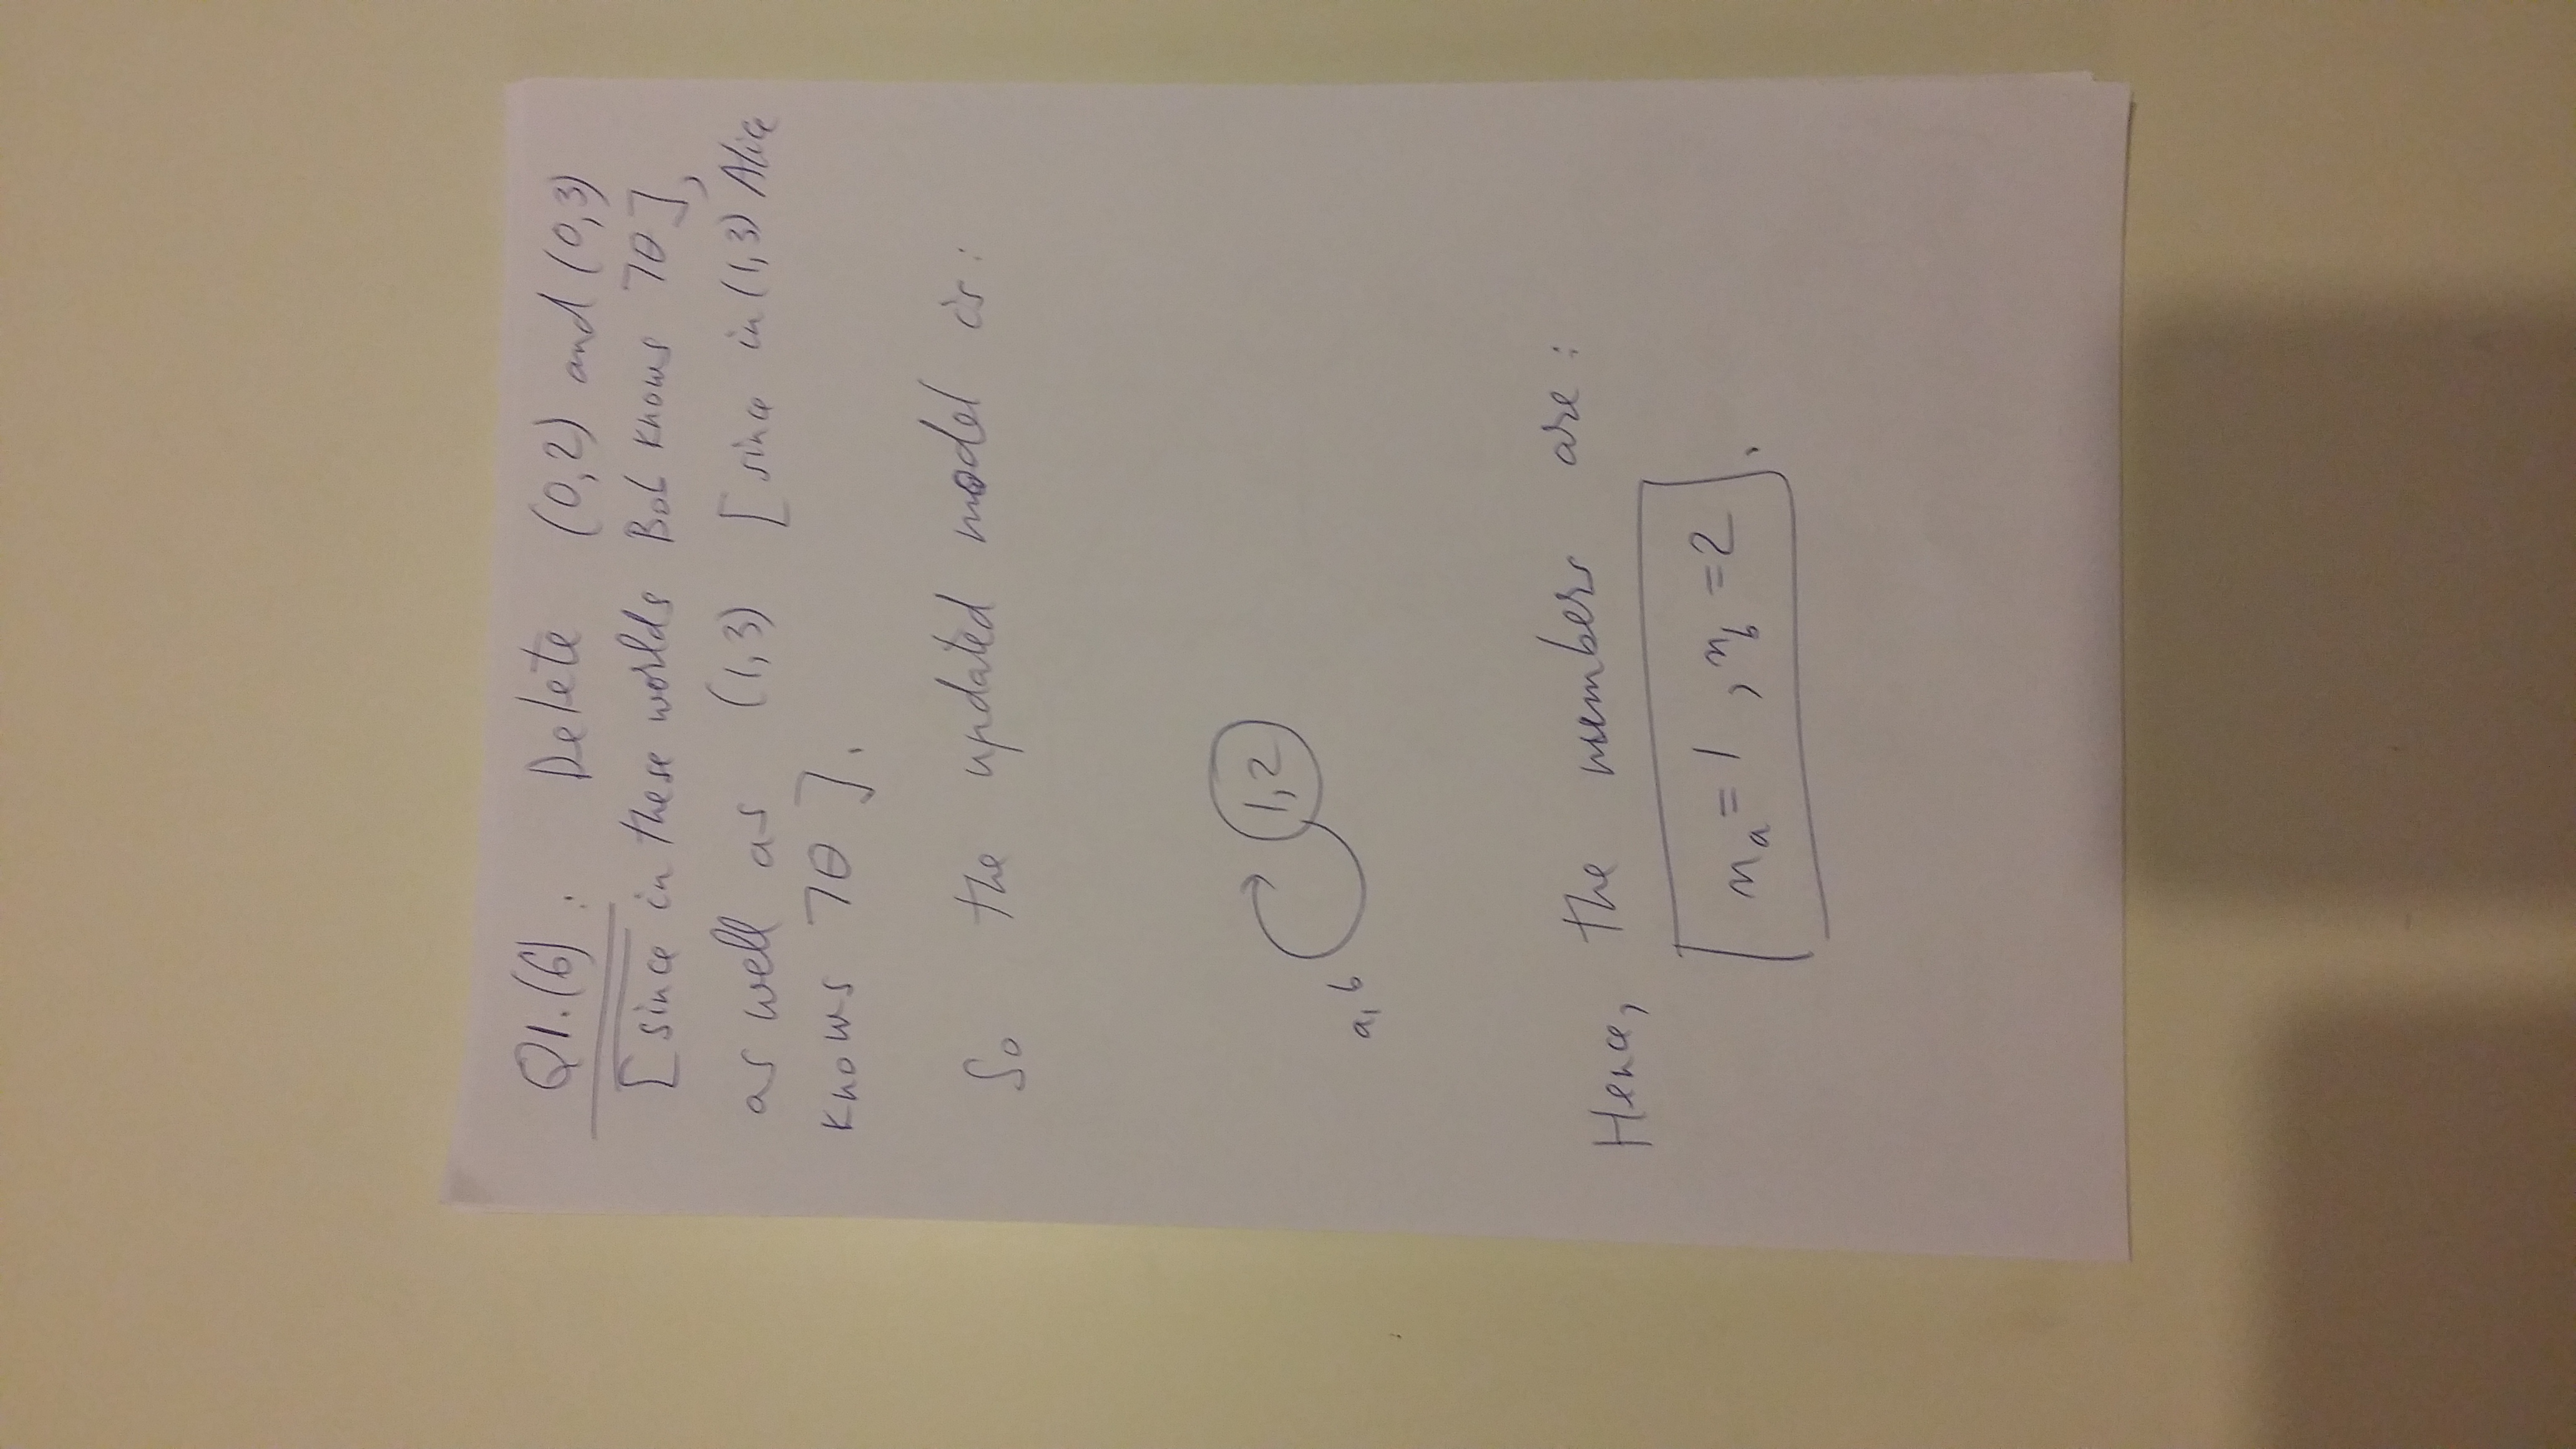 Q1.(6): Delete (0,2) and (0,3)
[since in these worlds Bob knows ¬θ],
as well as (1,3) [since in (1,3) Alice
knows ¬θ].
So the updated model is:
1,2
a,b
Hence, the numbers are:
n_a = 1, n_b = 2.